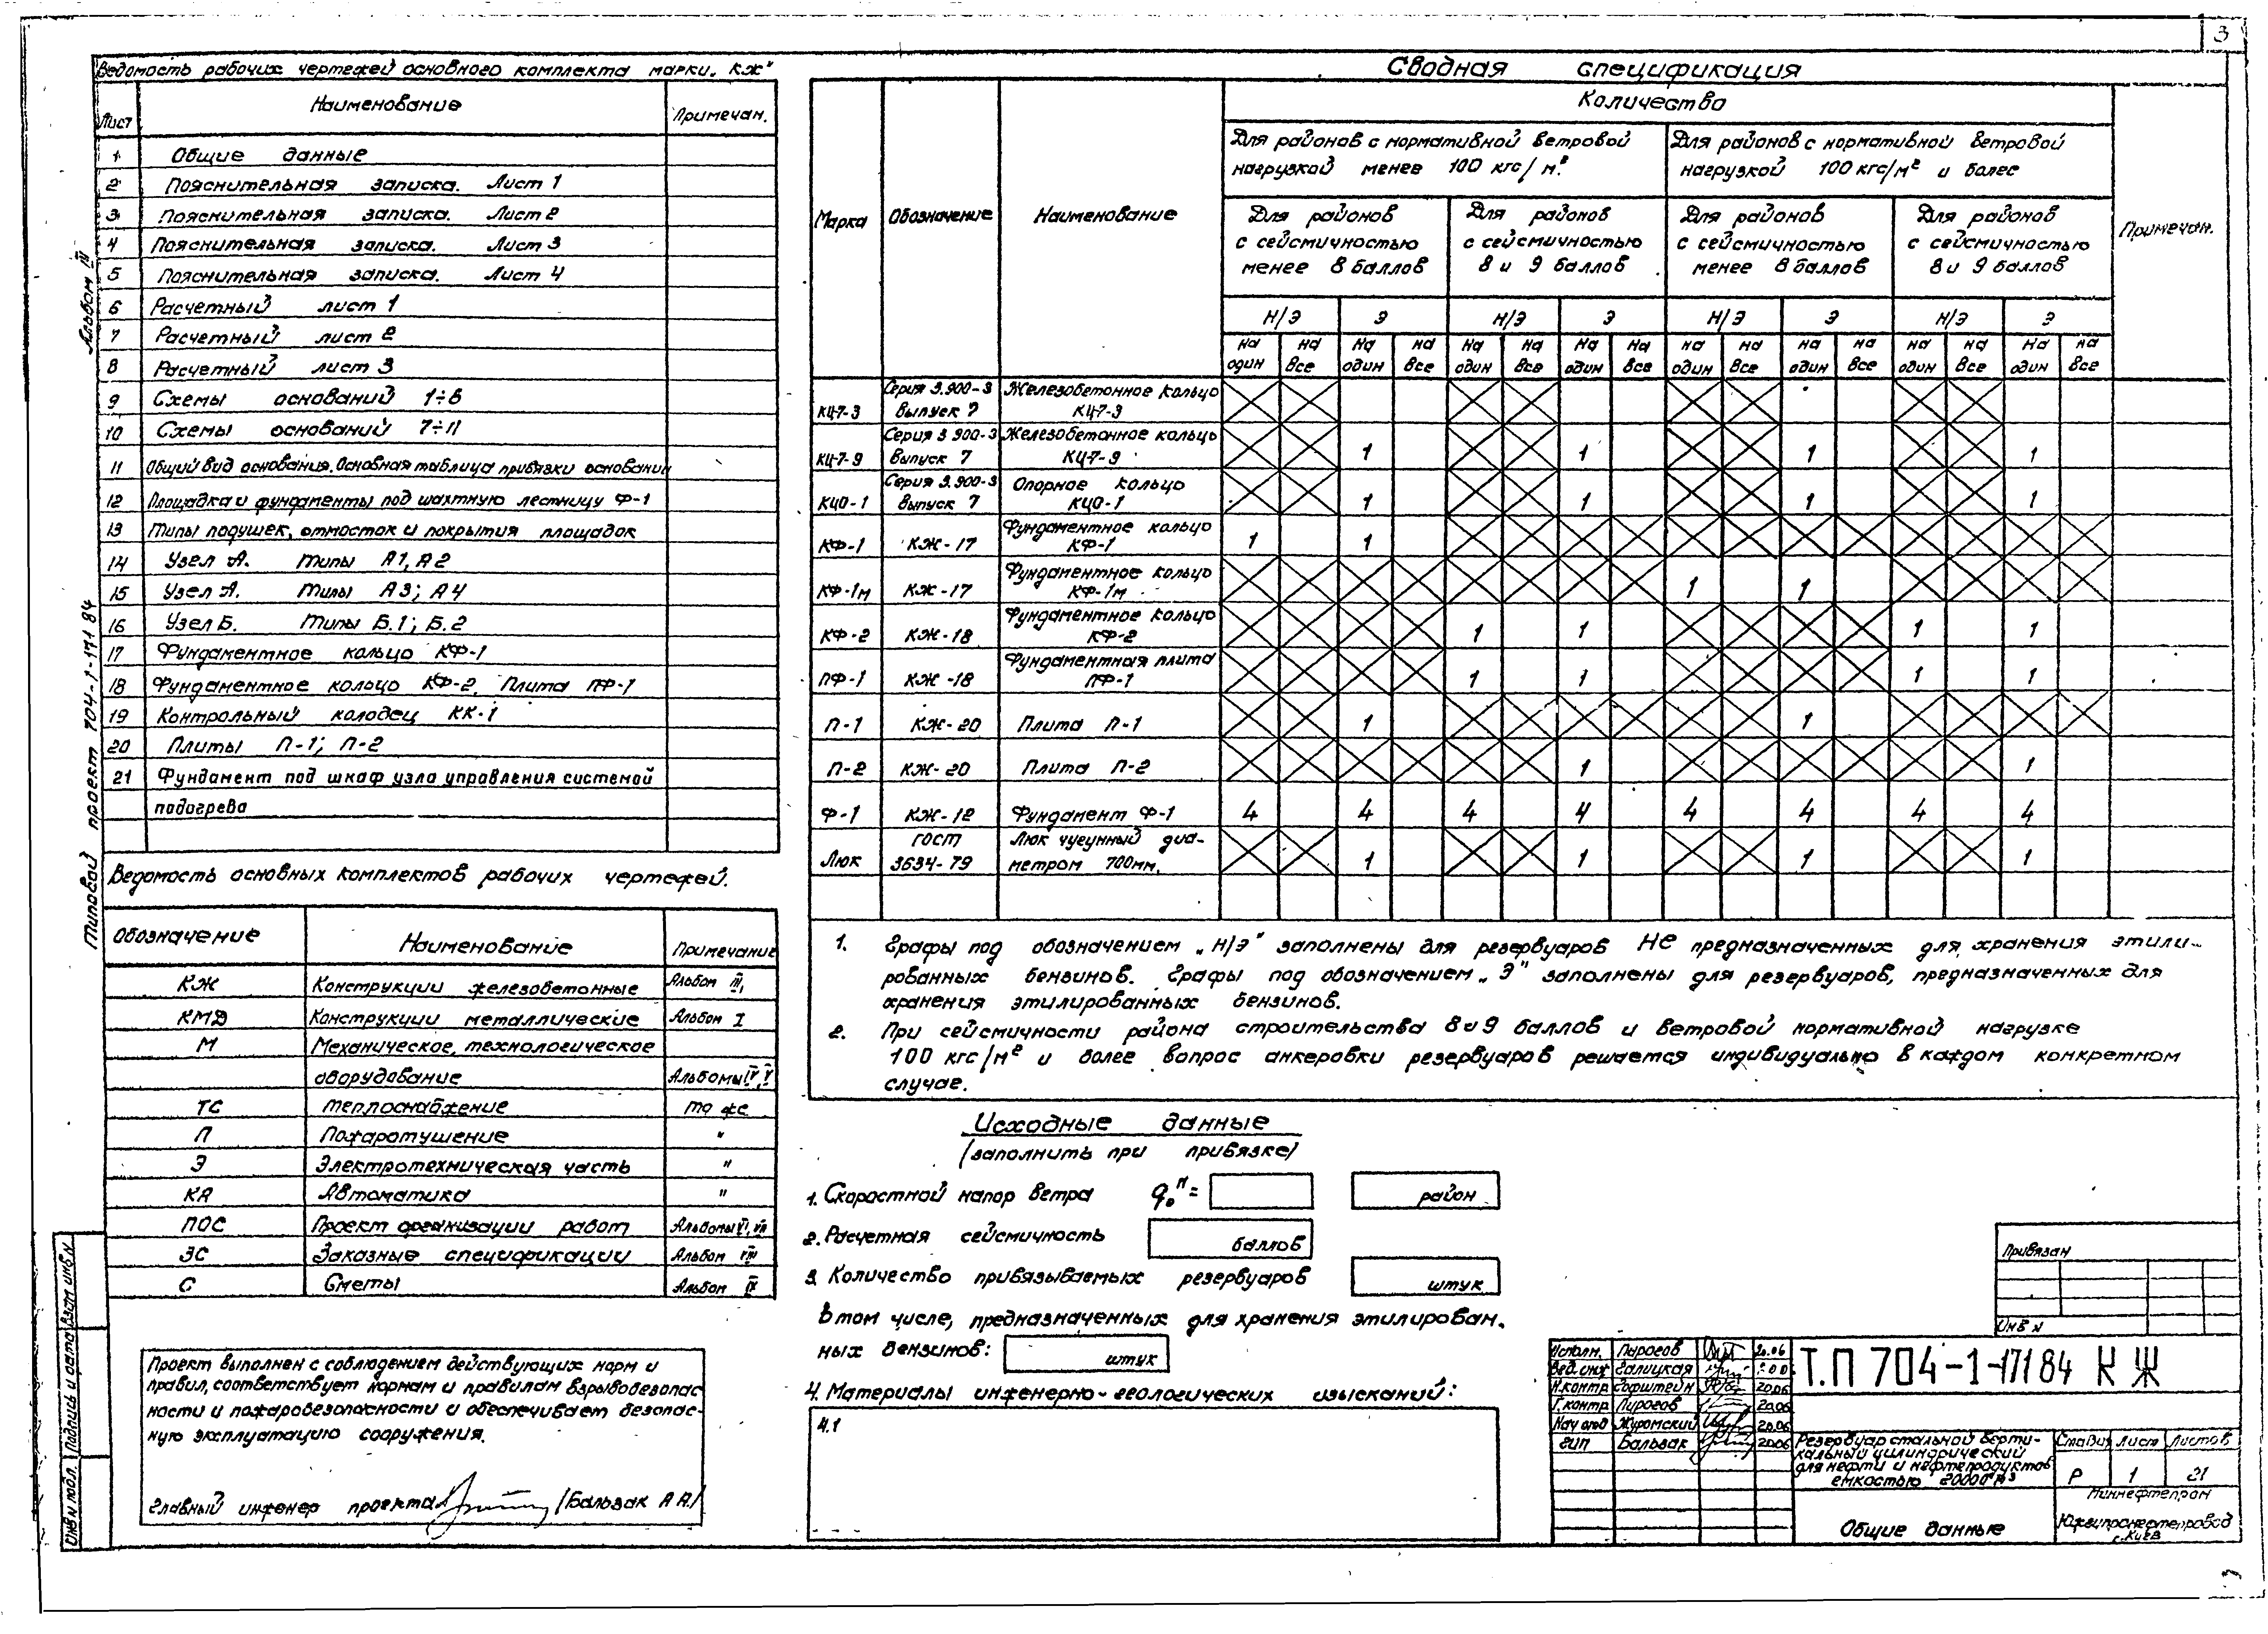 3
Ведомость рабочих чертежей основного комплекта марки „КЖ"
Лист Наименование Примечан.
1 Общие данные
2 Пояснительная записка. Лист 1
3 Пояснительная записка. Лист 2
4 Пояснительная записка. Лист 3
5 Пояснительная записка. Лист 4
6 Расчетный лист 1
7 Расчетный лист 2
8 Расчетный лист 3
9 Схемы оснований 1÷6
10 Схемы оснований 7÷11
11 Общий вид основания. Основная таблица привязки основании
12 Площадка и фундаменты под шахтную лестницу Ф-1
13 Типы подушек, отмосток и покрытия площадок
14 Узел А. Типы А1, А2
15 Узел А. Типы А3; А4
16 Узел Б. Типы Б.1; Б.2
17 Фундаментное кольцо КФ-1
18 Фундаментное кольцо КФ-2. Плита ПФ-1
19 Контрольный колодец КК-1
20 Плиты П-1; П-2
21 Фундамент под шкаф узла управления системой
подогрева
Ведомость основных комплектов рабочих чертежей.
Обозначение Наименование Примечание
КЖ Конструкции железобетонные Альбом III,
КМД Конструкции металлические Альбом I
М Механическое, технологическое
оборудование Альбомы IV, V
ТС Теплоснабжение То же
П Пожаротушение "
Э Электротехническая часть "
КА Автоматика "
ПОС Проект организации работ Альбомы VI, VII
ЗС Заказные спецификации Альбом VIII
С Сметы Альбом IX
Проект выполнен с соблюдением действующих норм и
правил, соответствует нормам и правилам взрывобезопас
ности и пожаробезопасности и обеспечивает безопас-
ную эксплуатацию сооружения.
Главный инженер проекта /Бальзак А А/
Типовой проект 704-1-171 84 Альбом III
Инв N подл. Подпись и дата Взам инв N
Сводная спецификация
Марка Обозначение Наименование Количество Примечан.
Для районов с нормативной ветровой
нагрузкой менее 100 кгс/м².
Для районов с нормативной ветровой
нагрузкой 100 кгс/м² и более
Для районов с сейсмичностью менее 8 баллов
Для районов с сейсмичностью 8 и 9 баллов
Для районов с сейсмичностью менее 8 баллов
Для районов с сейсмичностью 8 и 9 баллов
Н/Э Э Н/Э Э Н/Э Э Н/Э Э
на один на все на один на все на один на все на один на все на один на все на один на все на один на все на один на все
КЦ-7-3 Серия 3.900-3 Выпуск 7 Железобетонное кольцо КЦ-7-3
КЦ-7-9 Серия 3 900-3 Выпуск 7 Железобетонное кольцо КЦ-7-9 1 1 1 1
КЦО-1 Серия 3.900-3 Выпуск 7 Опорное кольцо КЦО-1 1 1 1 1
КФ-1 КЖ-17 Фундаментное кольцо КФ-1 1 1
КФ-1м КЖ-17 Фундаментное кольцо КФ-1м 1 1
КФ-2 КЖ-18 Фундаментное кольцо КФ-2 1 1 1 1
ПФ-1 КЖ-18 Фундаментная плита ПФ-1 1 1 1 1
П-1 КЖ-20 Плита П-1 1 1
П-2 КЖ-20 Плита П-2 1 1
Ф-1 КЖ-12 Фундамент Ф-1 4 4 4 4 4 4 4 4
Люк ГОСТ 3634-79 Люк чугунный диа-метром 700мм. 1 1 1 1
1. Графы под обозначением „Н/Э" заполнены для резервуаров не предназначенных для хранения этили-
рованных бензинов. Графы под обозначением „Э" заполнены для резервуаров, предназначенных для
хранения этилированных бензинов.
2. При сейсмичности района строительства 8 и 9 баллов и ветровой нормативной нагрузке
100 кгс/м² и более вопрос анкеровки резервуаров решается индивидуально в каждом конкретном
случае.
Исходные данные
/заполнить при привязке/
1. Скоростной напор ветра q₀ᴴ= район
2. Расчетная сейсмичность баллов
3. Количество привязываемых резервуаров штук
В том числе, предназначенных для хранения этилирован.
ных бензинов: штук
4. Материалы инженерно-геологических изысканий:
4.1
Привязан
Инв N
Исполн. Пирогов 20.06
Вед. инж Галицкая
Н.контр Горштейн 20.06
Г.контр Пирогов 20.06
Нач отд Журомский 20.06
ГИП Бальзак 20.06
Т.П 704-1-171 84 КЖ
Резервуар стальной верти-
кальный цилиндрический
для нефти и нефтепродуктов
емкостью 20000 м³
Стадия Лист Листов
Р 1 21
Общие данные
Миннефтепром
Южгипронефтепровод
г. Киев
3